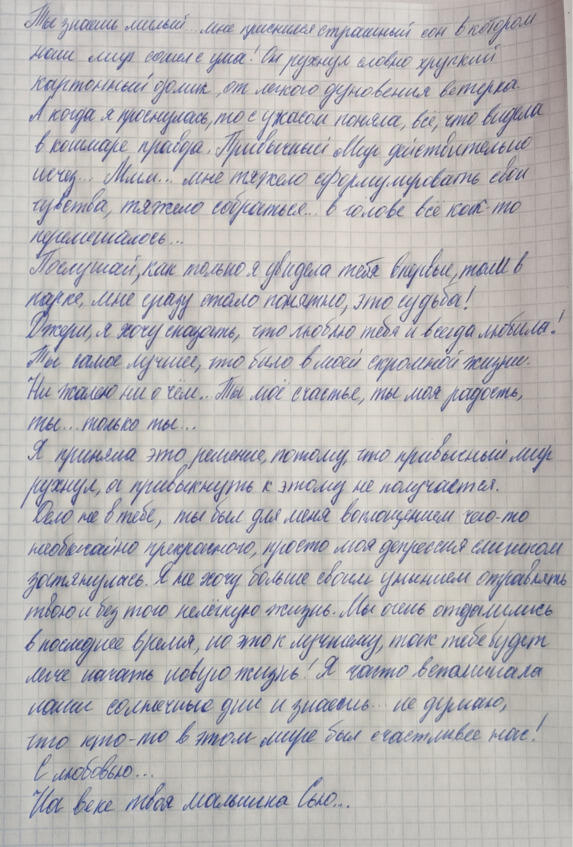 Ты знаешь милый... мне приснился страшный сон в котором
наш мир сошел с ума! Он рухнул словно хрупкий
картонный домик, от легкого дуновения ветерка.
А когда я проснулась, то с ужасом поняла, всё, что видела
в кошмаре правда. Привычный Мир действительно
исчез... Ммм... мне тяжело сформулировать свои
чувства, тяжело собраться... в голове всё как-то
перемешалось...
Послушай, как только я увидела тебя впервые, там в
парке, мне сразу стало понятно, это судьба!
Джери, я хочу сказать, что люблю тебя и всегда любила!
Ты самое лучшее, что было в моей скромной жизни.
Ни жалею ни о чём... Ты моё счастье, ты моя радость,
ты... только ты...
Я приняла это решение, потому, что привычный мир
рухнул, а привыкнуть к этому не получается.
Дело не в тебе, ты был для меня воплощением чего-то
необычайно прекрасного, просто моя депрессия слишком
затянулась. Я не хочу больше своим унынием отравлять
твою и без того нелёгкую жизнь. Мы очень отдалились
в последнее время, но это к лучшему, так тебе будет
легче начать новую жизнь! Я часто вспоминала
наши солнечные дни и знаешь... не думаю,
что кто-то в этом мире был счастливее нас!
С любовью...
На веке твоя малышка Сью...